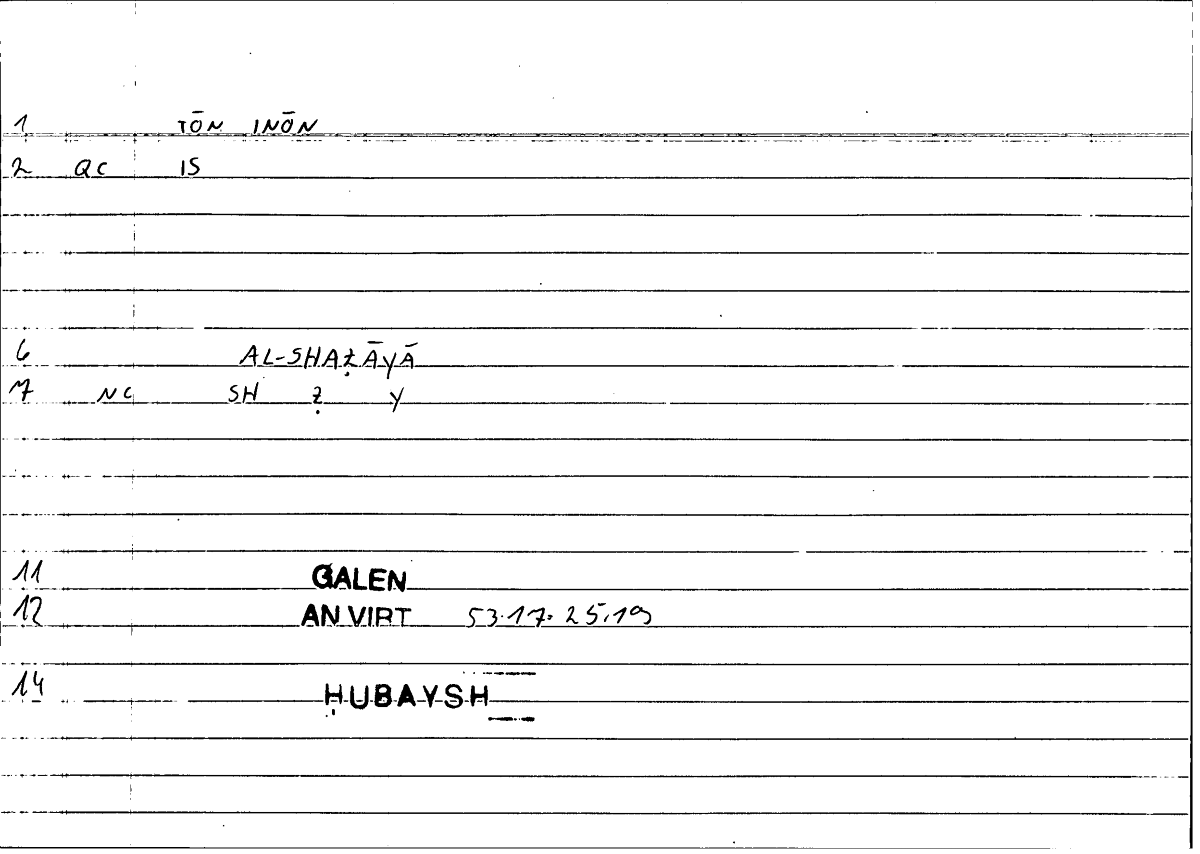 1 TŌN INŌN
2 QC IS
6 AL-SHAẒĀYĀ
7 NC SH Ẓ Y
11 GALEN
12 AN VIRT 53.17. 25.19
14 ḤUBAYSH